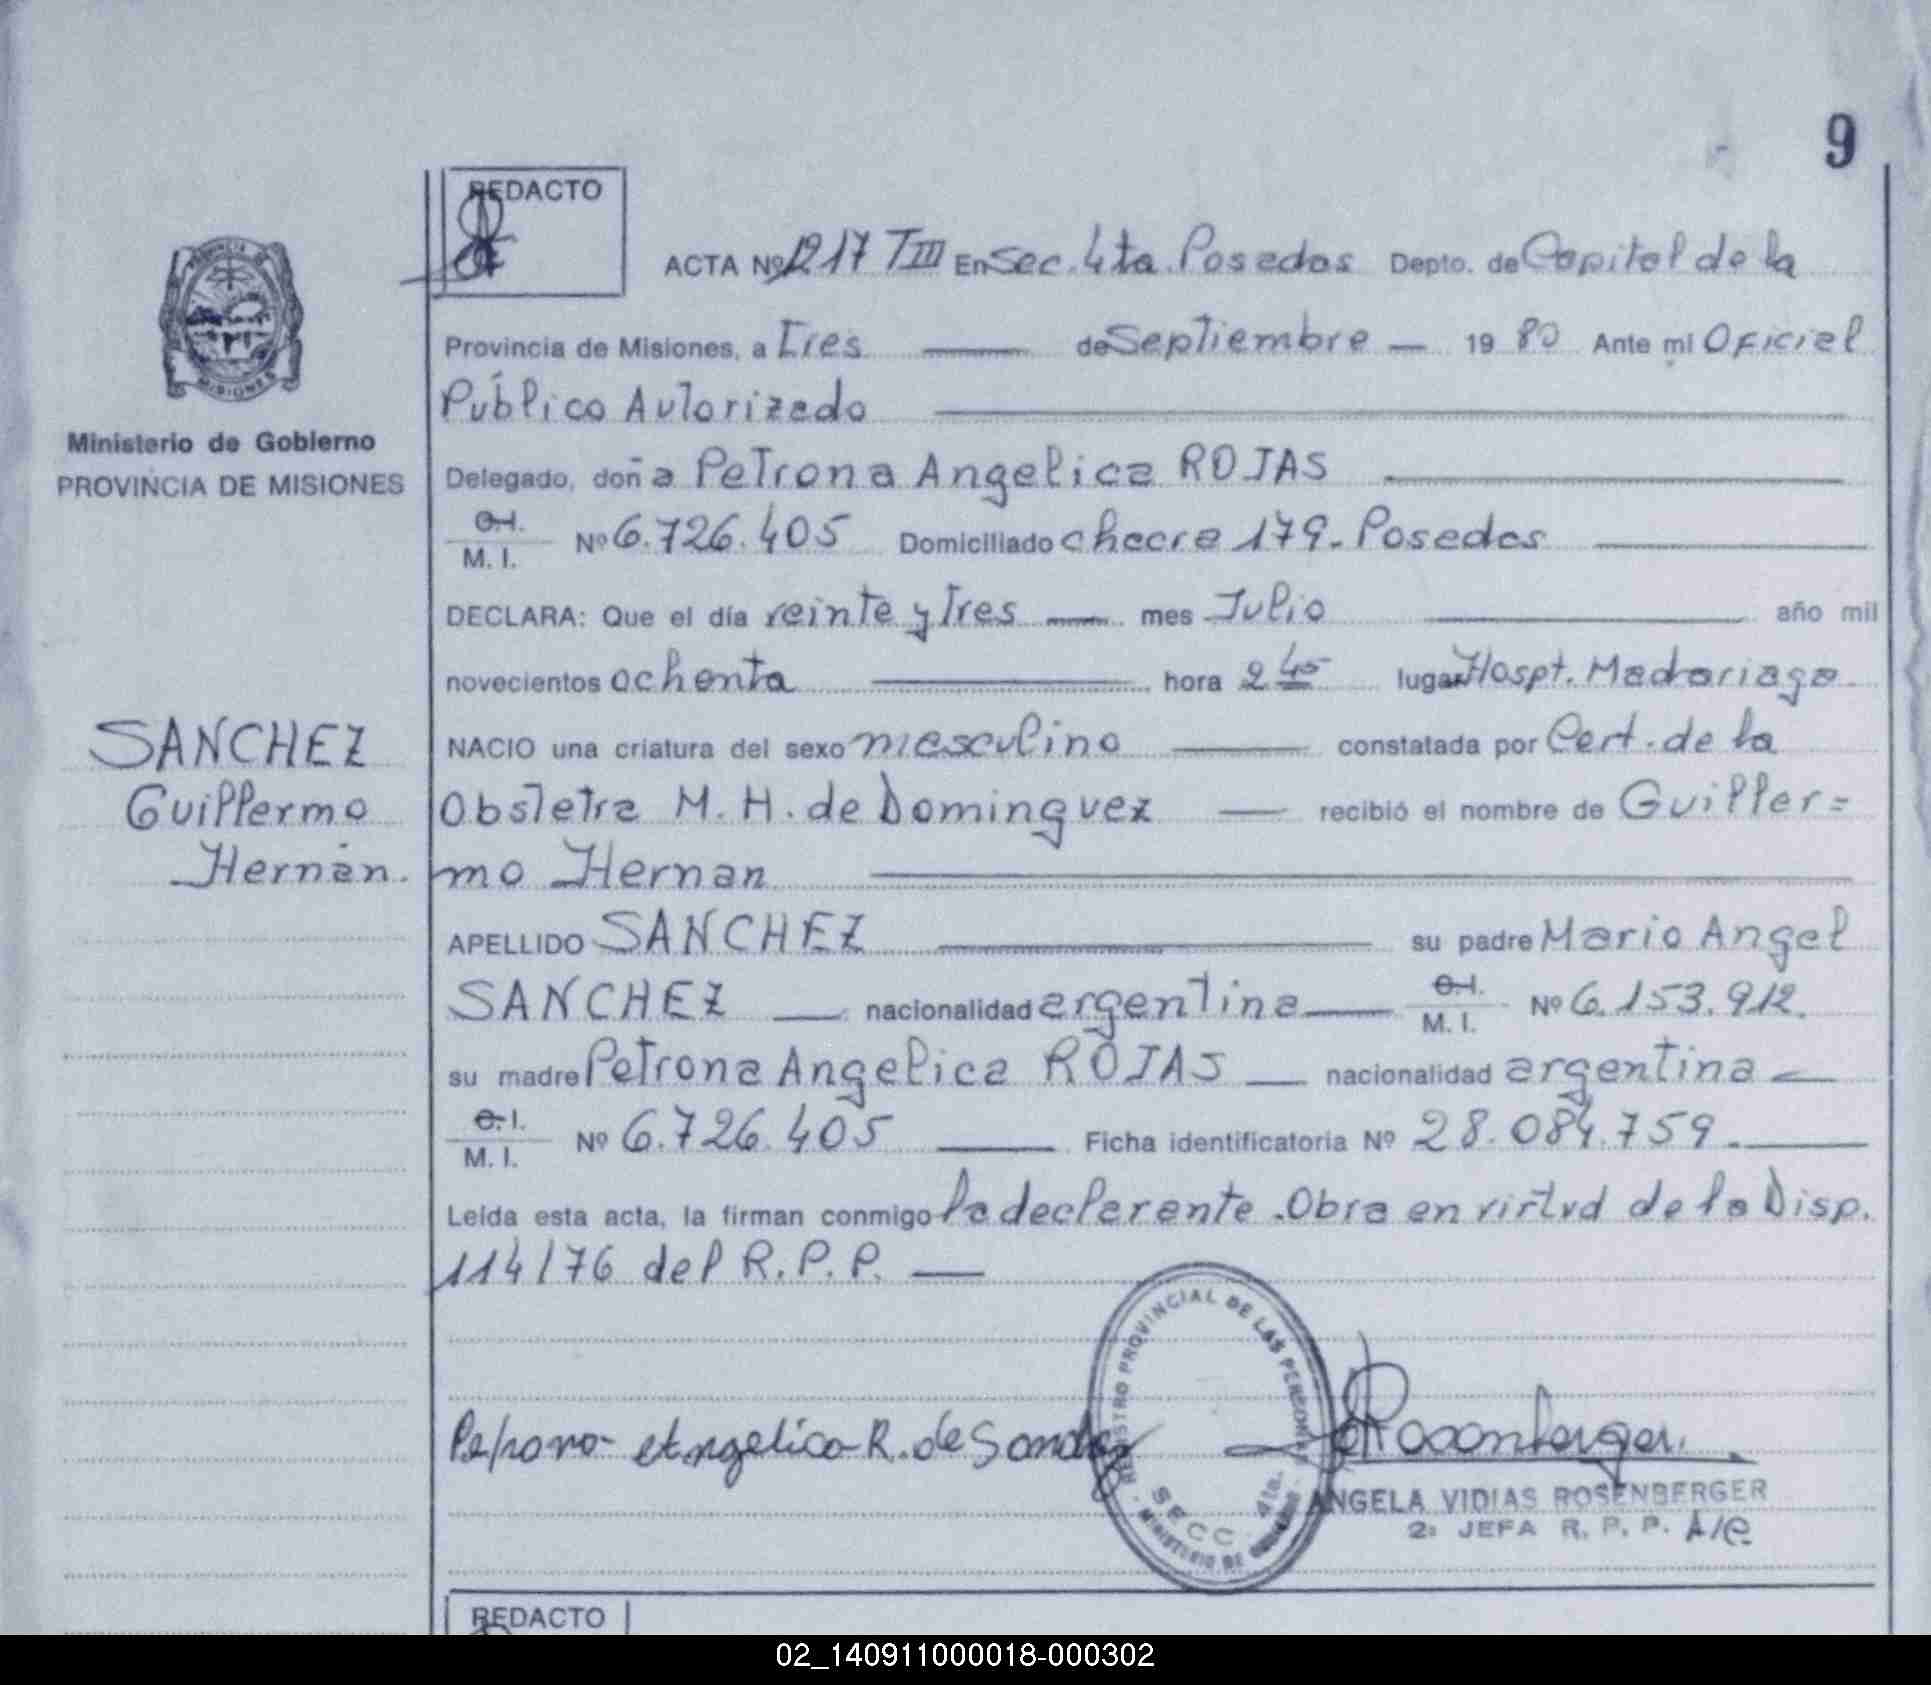 9
REDACTO
ACTA Nº 1217 TIII En Sec. 4ta. Posadas Depto. de Capital de la
Provincia de Misiones, a tres de Septiembre 19 80 Ante mi Oficial
Público Autorizado
Ministerio de Gobierno
PROVINCIA DE MISIONES
Delegado, doña Petrona Angelica ROJAS
C.I. M. I. Nº 6.726.405 Domiciliado chacra 179. Posadas
DECLARA: Que el día veinte y tres mes Julio año mil
novecientos ochenta hora 2 45 lugar Hospt. Madariaga
SANCHEZ
Guillermo
Hernán.
NACIO una criatura del sexo masculino constatada por Cert. de la
Obstetra M. H. de Dominguez recibió el nombre de Guiller=
mo Hernan
APELLIDO SANCHEZ su padre Mario Angel
SANCHEZ nacionalidad argentina C.I. M. I. Nº 6.153.912.
su madre Petrona Angelica ROJAS nacionalidad argentina
C.I. M. I. Nº 6.726.405 Ficha identificatoria Nº 28.084.759.
Leída esta acta, la firman conmigo la declarente. Obra en virtud de la Disp.
114/76 del R.P.P.
Petrona Angelica R. de Sanchez
REGISTRO PROVINCIAL DE LAS PERSONAS
SECC. 4ta.
MINISTERIO DE GOBIERNO
Rosenberger
ANGELA VIDIAS ROSENBERGER
2ª JEFA R. P. P. A/C
REDACTO
02_140911000018-000302